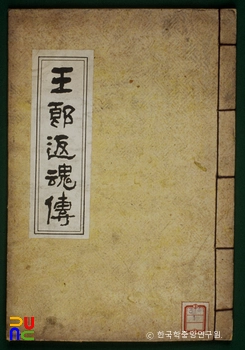 王郎返魂傳
© 한국학중앙연구원